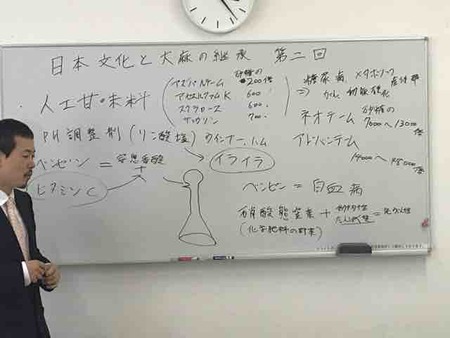 日本文化と大麻の継承 第二回
人工甘味料
アスパルテーム 砂糖の200倍
アセスルファムK 600
スクラロース 600
サッカリン 700
糖尿病 メタボリック
⇒
ネオテーム 砂糖の7000〜13000倍
アドバンテーム
14000〜48000倍
PH調整剤(リン酸塩)ウインナー、ハム
イライラ
ベンゼン = 安息香酸
+
ビタミンC
ベンゼン = 白血病
硝酸態窒素 +
たんぱく質
(化学肥料の野菜)